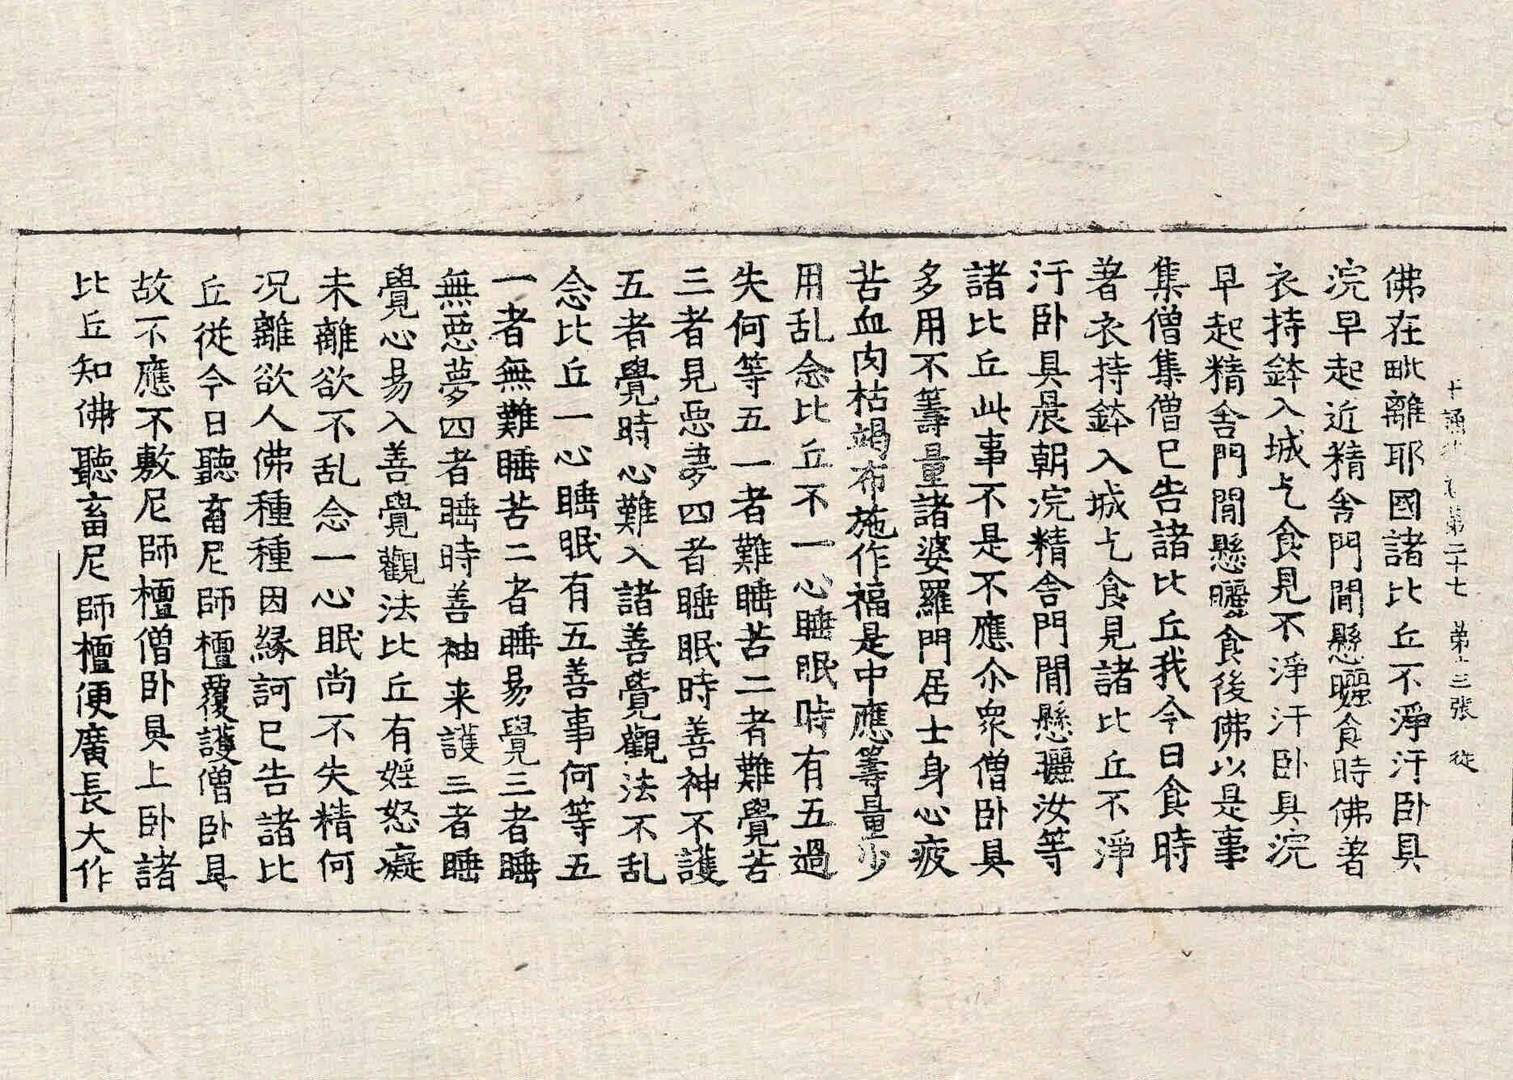 十誦律 卷第二十七 第十三張 従
佛在毗離耶國諸比丘不淨汙卧具
浣早起近精舍門閒懸曬食時佛著
衣持鉢入城乞食見不淨汙卧具浣
早起精舍門閒懸曬食後佛以是事
集僧集僧已告諸比丘我今日食時
著衣持鉢入城乞食見諸比丘不淨
汙卧具晨朝浣精舍門閒懸曬汝等
諸比丘此事不是不應尒衆僧卧具
多用不籌量諸婆羅門居士身心疲
苦血肉枯竭布施作福是中應籌量少
用乱念比丘不一心睡眠時有五過
失何等五一者難睡苦二者難覺苦
三者見惡夢四者睡眠時善神不護
五者覺時心難入諸善覺觀法不乱
念比丘一心睡眠有五善事何等五
一者無難睡苦二者睡易覺三者睡
無惡夢四者睡時善神来護五者睡
覺心易入善覺觀法比丘有婬怒癡
未離欲不乱念一心眠尚不失精何
況離欲人佛種種因緣訶已告諸比
丘從今日聽畜尼師檀覆護僧卧具
故不應不敷尼師檀僧卧具上卧諸
比丘知佛聽畜尼師檀便廣長大作